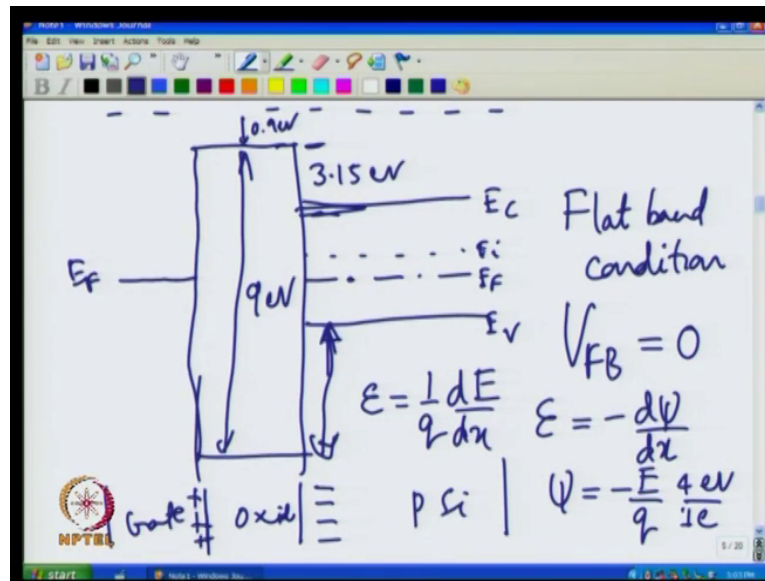 Note1 - Windows Journal
File Edit View Insert Actions Tools Help
B I
0.9eV
3.15 eV
Ec
Flat band
condition
Ei
EF
EF
9eV
Ev
VFB = 0
ε = 1/q dE/dx
ε = - dψ/dx
ψ = - E/q 4 eV/1e
Gate
Oxid
P Si
NPTEL
5 / 20
start
Note1 - Windows Jou...
5:03 PM